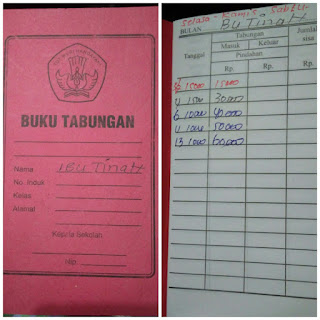 BUKU TABUNGAN
Nama IBU TINAH
No. Induk
Kelas
Alamat
Kepala Sekolah
Nip.
Selasa - Kamis - Sabtu-
BULAN BU TINAH
Tanggal Tabungan Jumlah
Masuk Keluar sisa
Pindahan
Rp. Rp. Rp.
15000 15000
4 1500 30000
6 10000 40000
11 10000 50000
13 10000 60000